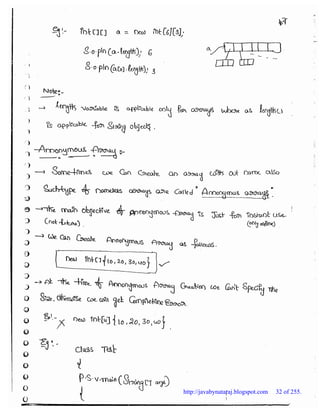 Eg:- int[][] a = new int[6][3];
S.o.pln (a.length); 6
S.o.pln (a[0].length); 3
a
Note:-
→ length variable is applicable only for arrays where as length()
is applicable for String objects.
-Annonymous Array :-
→ Some-times we can Create an array with out name also
Such type of nameless arrays are Called "Annonymous arrays".
→ The main objective of Annonymous Array is Just for instant use.
(not future) (only online)
→ We Can Create Annonymous Array as follows.
new int[]{10,20,30,40}; ✓
→ At the time of Annonymous Array Creation we Can't Specify the
Size, Otherwise we will get CompileTime Error.
Eg:- X new int[4]{10,20,30,40};
Eg:-
class Test
{
P.S.v.main(String[] args)
{
http://javabynataraj.blogspot.com 32 of 255.